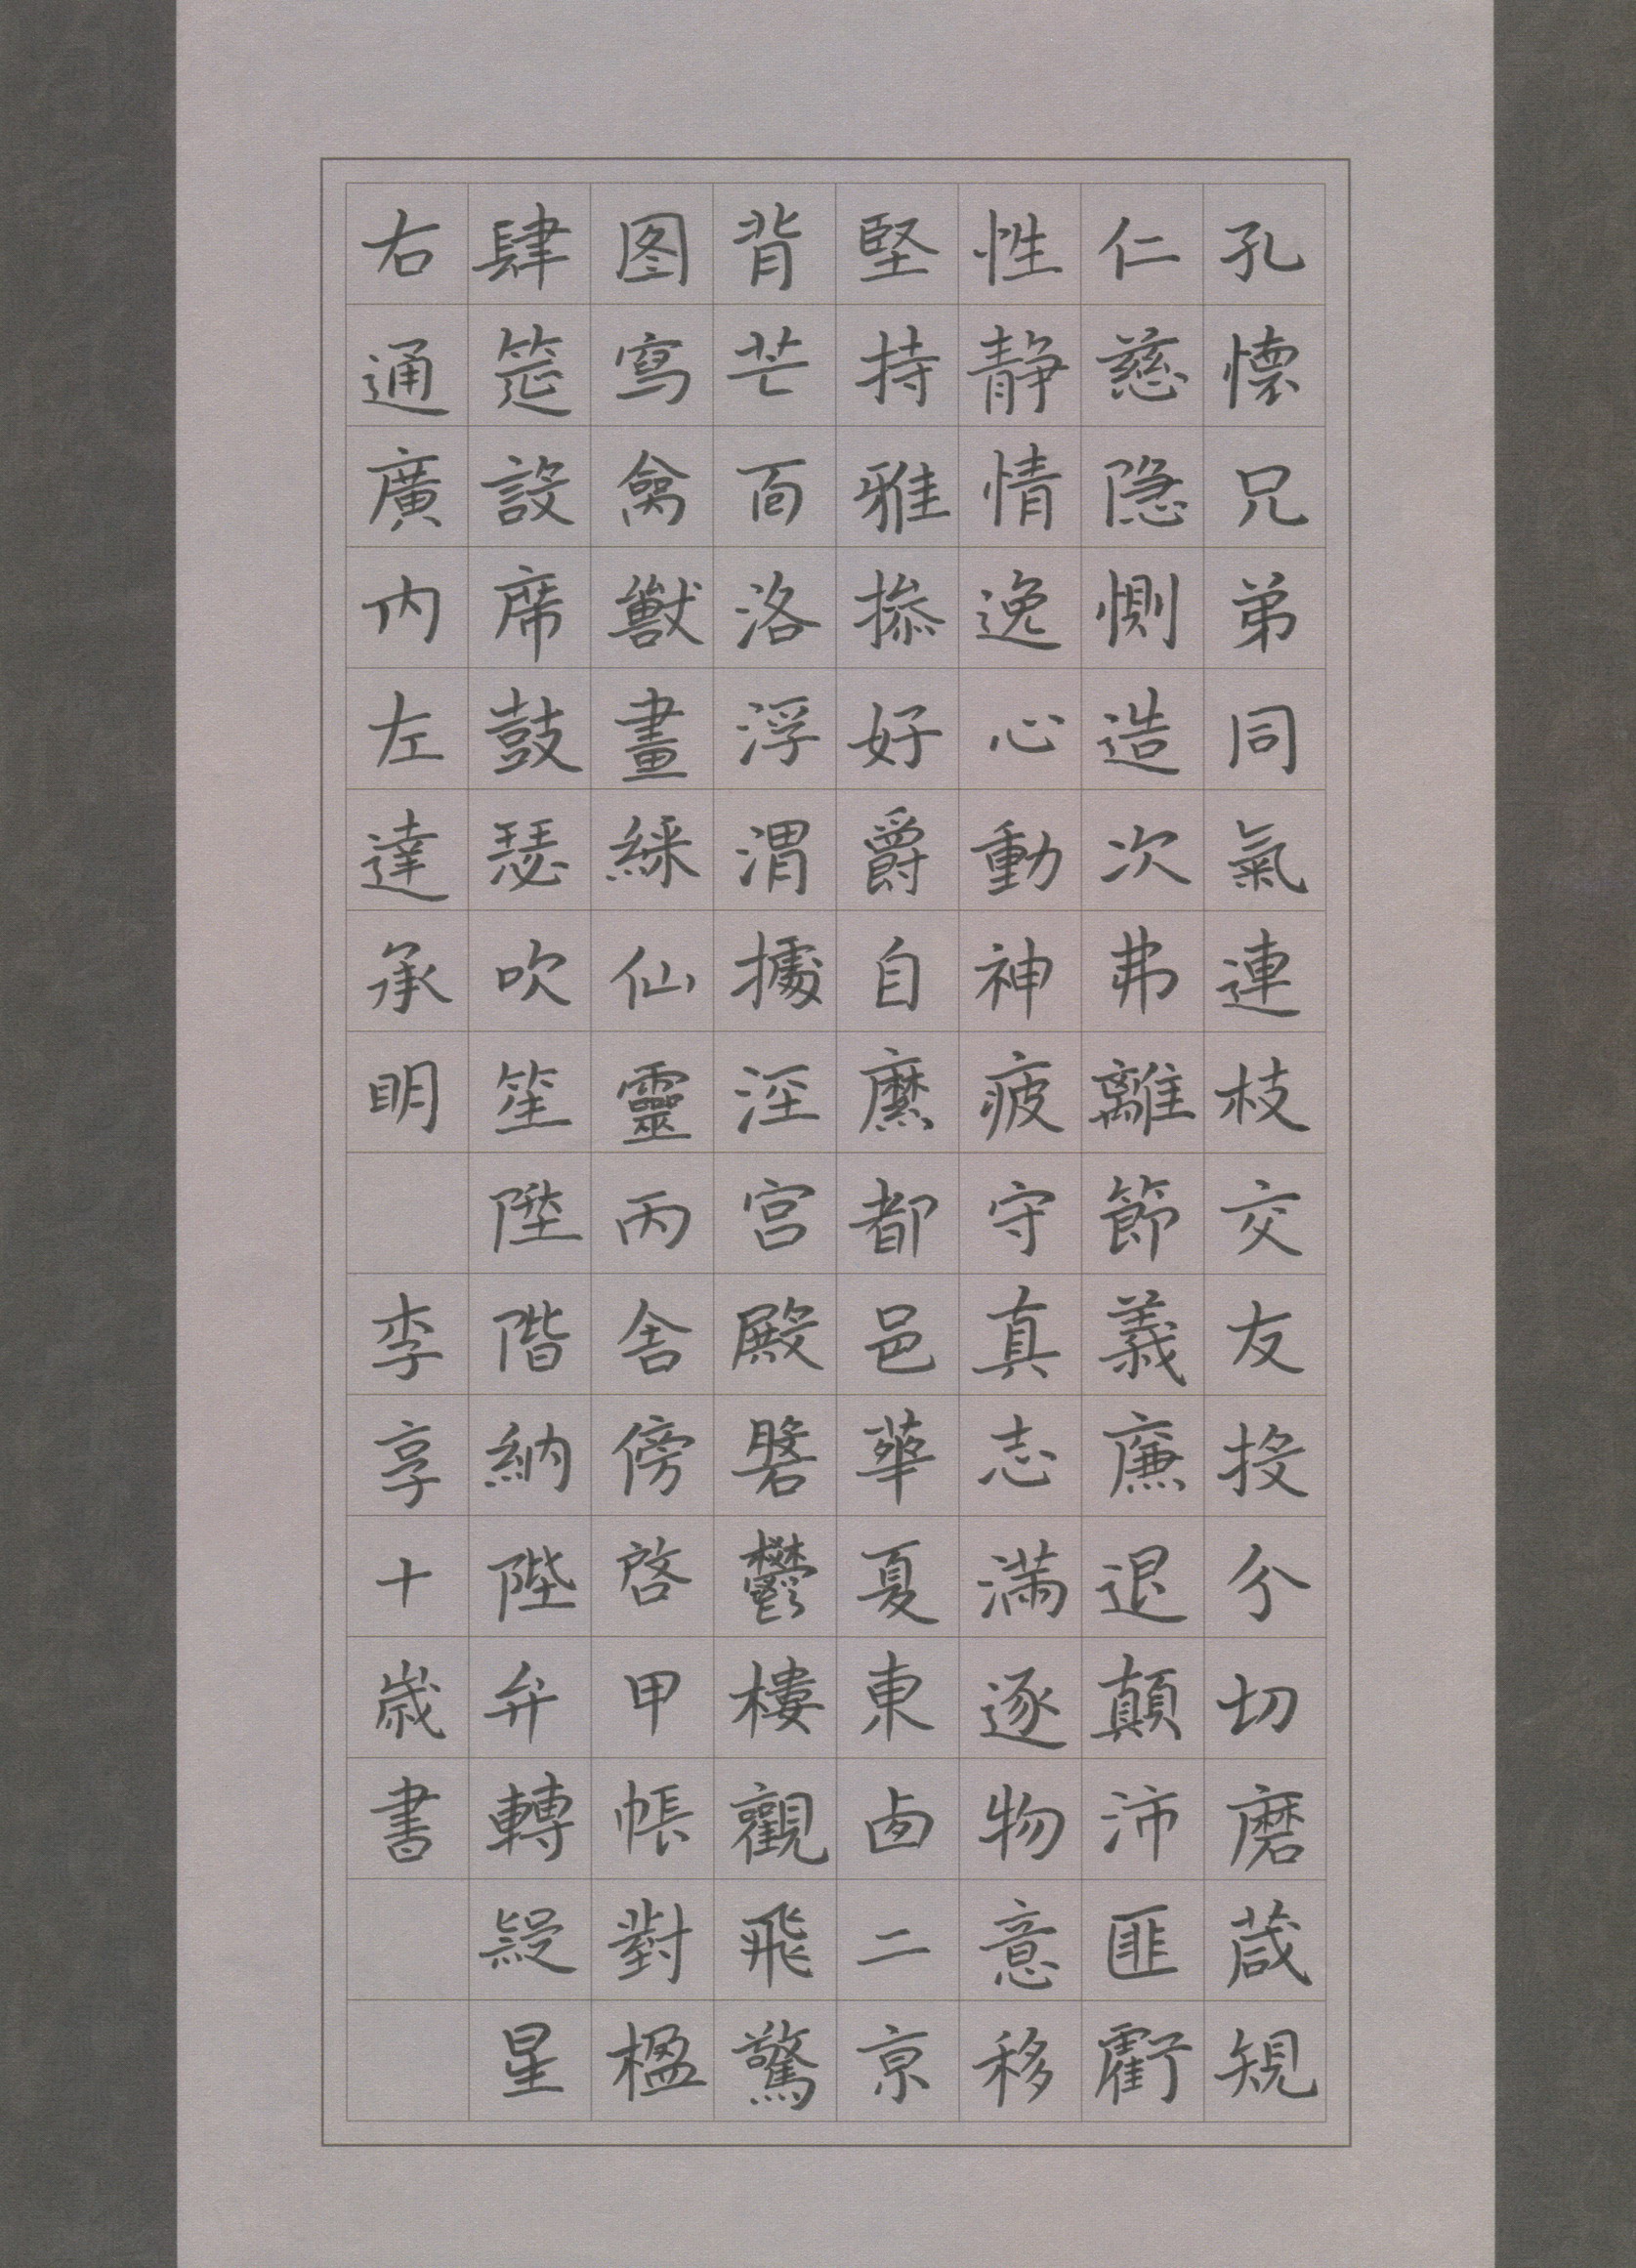 孔懷兄弟同氣連枝交友投分切磨葴規
仁慈隐惻造次弗離節義廉退顛沛匪虧
性静情逸心動神疲守真志滿逐物意移
堅持雅操好爵自縻都邑華夏東西二京
背芒面洛浮渭據涇宫殿磐鬱樓觀飛驚
图寫禽獸畫綵仙靈丙舍傍啓甲帳對楹
肆筵設席鼓瑟吹笙陞階納陛弁轉疑星
右通廣内左達承明 李享十歲書